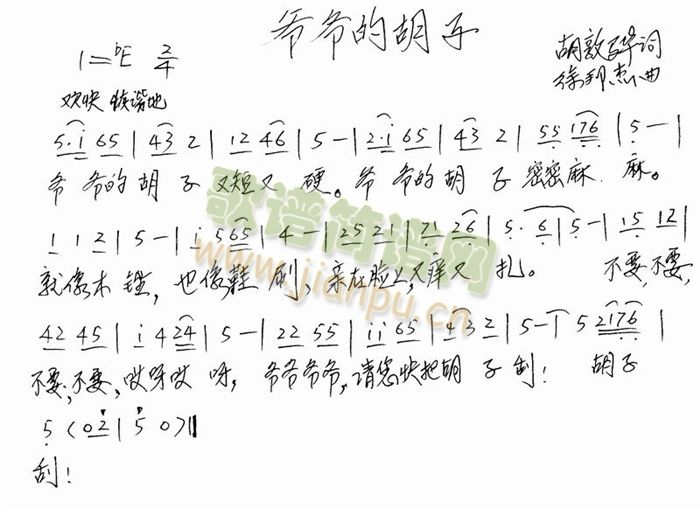 爷爷的胡子
1=♭E 2/4
胡敦骅词
徐邦杰曲
欢快 诙谐地
5·i 65 | 43 2 | 12 46 | 5 — | 2·i 65 | 43 2 | 55 176 | 5 — |
爷爷的胡子又短又硬。爷爷的胡子密密麻麻。
1 1 2 | 5 — | i 565 | 4 — | 25 21 | 71 26 | 5· 6 | 5 — | 15 12 |
就像木锉,也像鞋刷,亲在脸上又痒又扎。不要,不要,
42 45 | i 424 | 5 — | 22 55 | ii 65 | 43 2 | 5 — | 5 2176 |
不要,不要,哎呀哎呀,爷爷爷爷,请您快把胡子刮!胡子
5 (02 | 5 0) ‖
刮!
歌谱简谱网
www.jianpu.cn